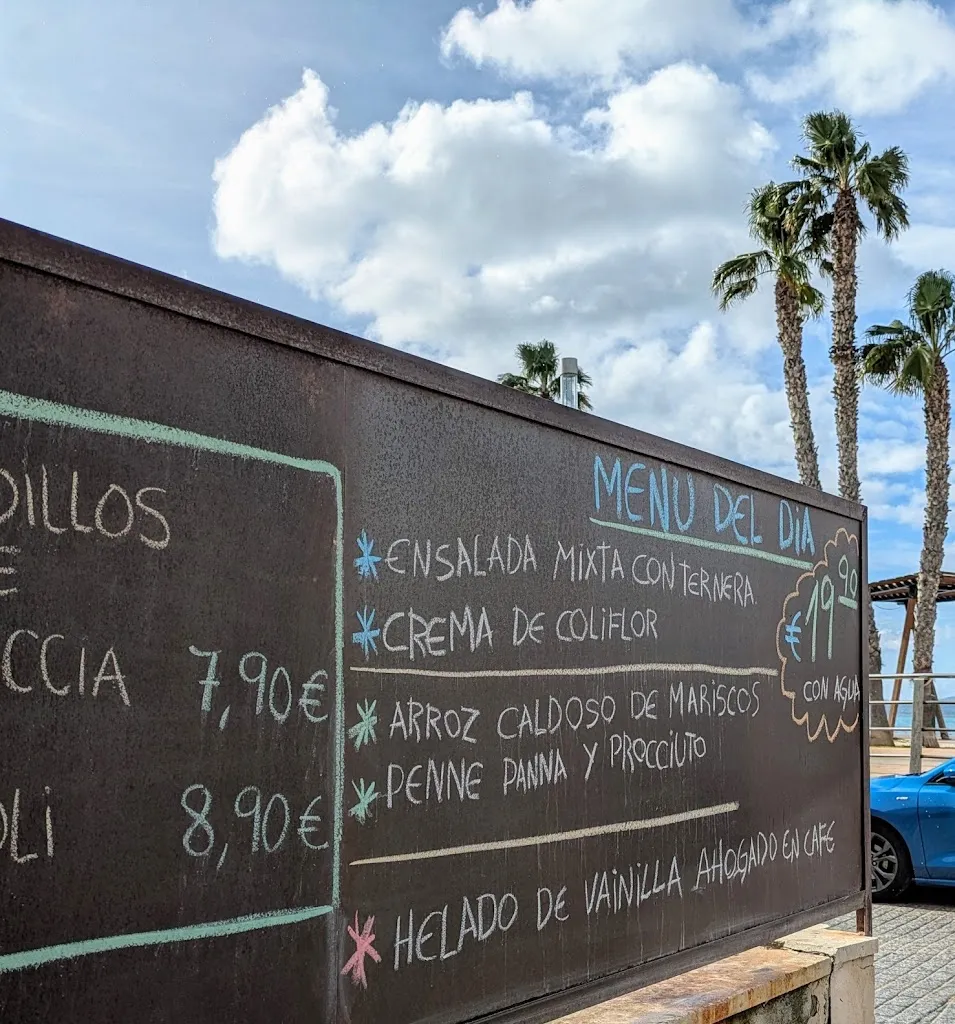 DILLOS
CCIA 7,90€
OLI 8,90€
MENU DEL DIA
* ENSALADA MIXTA CON TERNERA
* CREMA DE COLIFLOR
€19,90
CON AGUA
* ARROZ CALDOSO DE MARISCOS
* PENNE PANNA Y PROCCIUTO
* HELADO DE VAINILLA AHOGADO EN CAFE